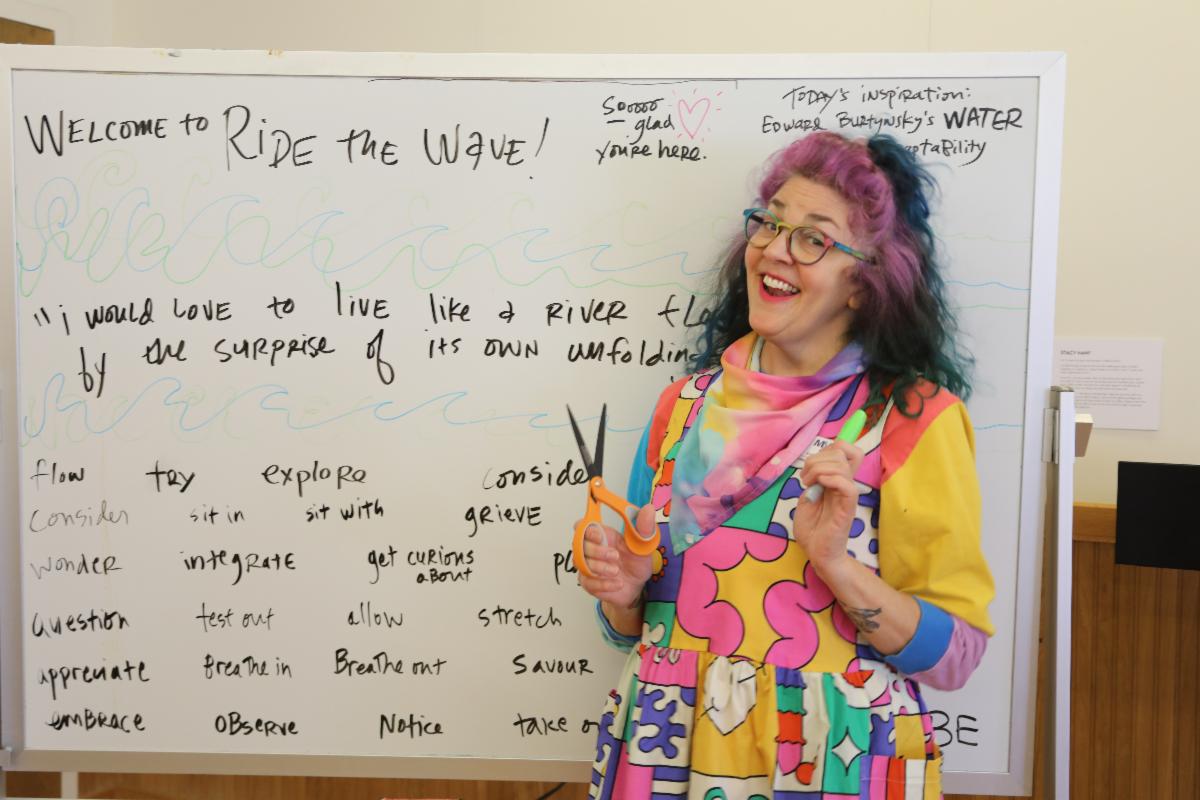 WELCOME to RIDE THE WAVE!
Sooooo
glad
you're here.
TODAY'S inspiration:
EDWARD BURTYNSKY'S WATER
"i would LOVE to LIVE like a RIVER
by the SURPRISE of its OWN
flow try explore
consider sit in sit with grieve
wonder integrate get curious
about
question test out allow stretch
appreciate Breathe in Breathe out savour
embrace observe Notice take
BE